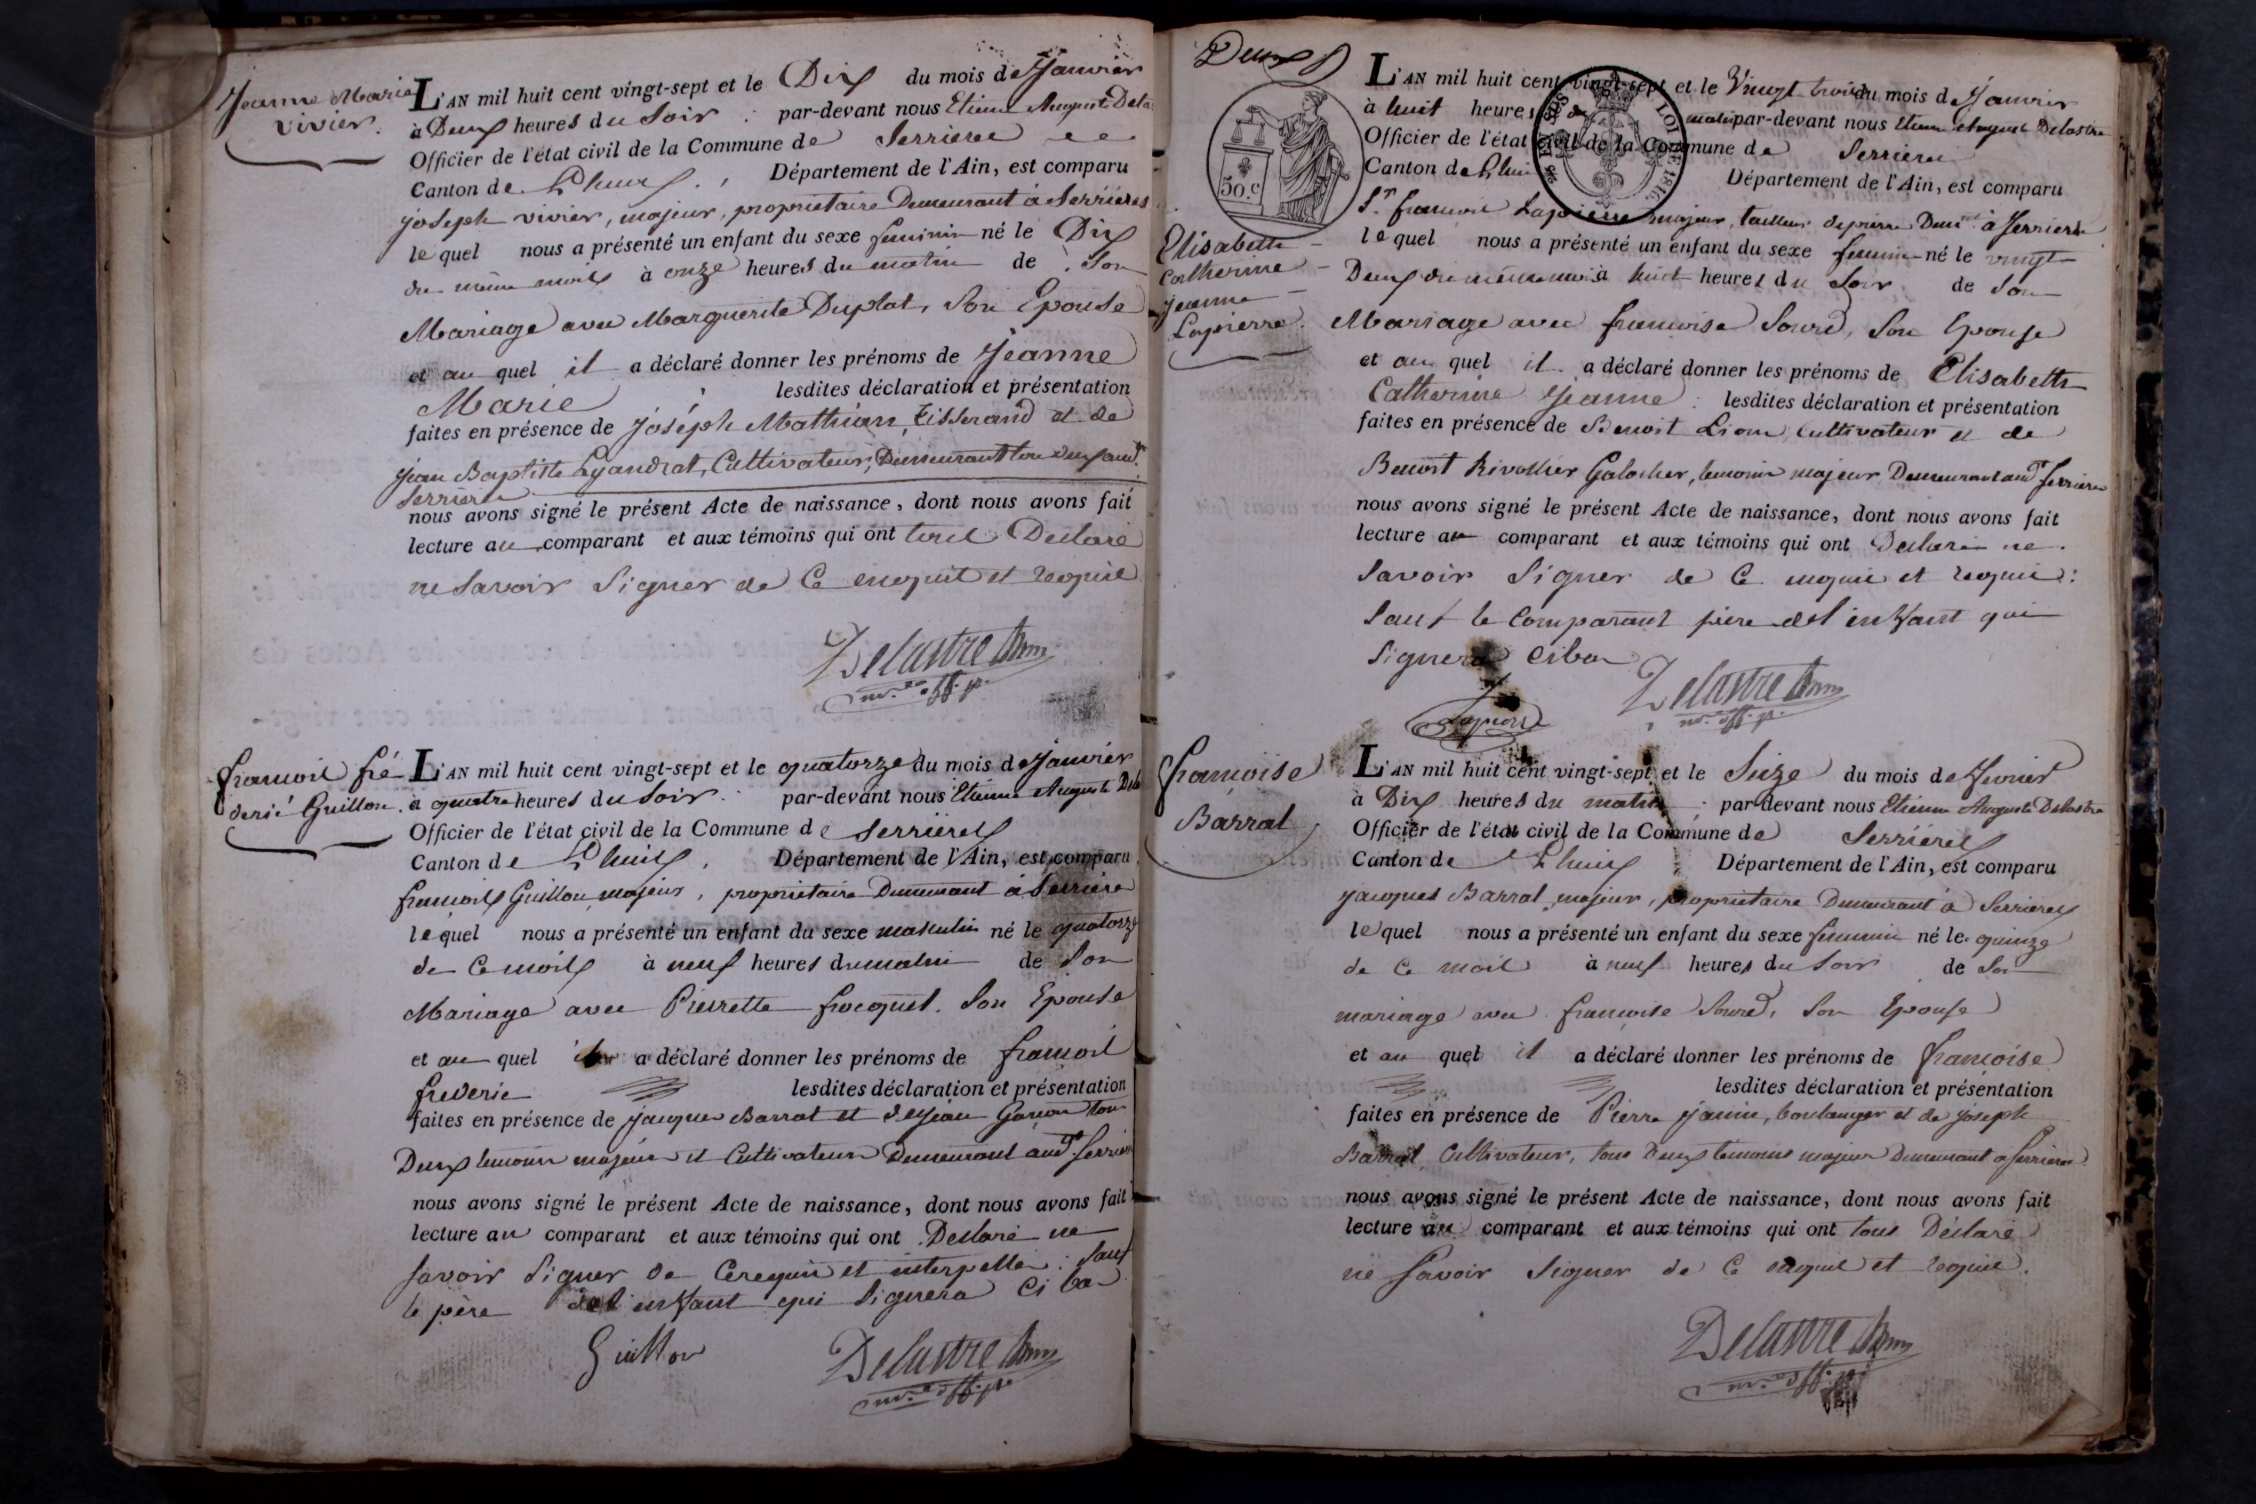 Jeanne Marie
vivier.
L'AN mil huit cent vingt-sept et le Dix du mois de Janvier
à Deux heures du Soir : par-devant nous Etienne Auguste Dela
Officier de l'état civil de la Commune de Serrieres
Canton de Lhuis, Département de l'Ain, est comparu
joseph vivier, majeur, proprietaire Demeurant à Serrières
le quel nous a présenté un enfant du sexe feminin né le Dix
du même mois à onze heures du matin de Son
Mariage avec Marguerite Duplat, Son Epouse
et au quel il a déclaré donner les prénoms de Jeanne
Marie lesdites déclaration et présentation
faites en présence de joséph Mathian, Tisserand et de
jean Baptiste Cultivateur, Demeurant tou deux aud.
Serrieres
nous avons signé le présent Acte de naissance, dont nous avons fait
lecture au comparant et aux témoins qui ont tous Declaré
ne Savoir Signer de Ce enquit et requis
Delastre
francois fré
deric Guillon.
L'AN mil huit cent vingt-sept et le quatorze du mois de Janvier
à quatre heures du Soir : par-devant nous Etienne Auguste Dela
Officier de l'état civil de la Commune de Serrières
Canton de Lhuis, Département de l'Ain, est comparu
francois Guillon, majeur, proprietaire Demeurant à Serriere
le quel nous a présenté un enfant du sexe masculin né le quatorze
de Ce mois à neuf heures du matin de Son
Mariage avec Pierrette frocquet. Son Epouse
et au quel il a déclaré donner les prénoms de francois
frederic lesdites déclaration et présentation
faites en présence de jacques Barrat et de Jean tou
Deux temoins majeurs et Cultivateurs Demeurant aud. Serrieres
nous avons signé le présent Acte de naissance, dont nous avons fait
lecture au comparant et aux témoins qui ont Declaré ne
Savoir Signer de Ce requis et interpellé : Sauf
le père de l'enfant qui Signera Ci ba
Guillon
Delastre
Deux
50.c
LOI DE 1816
L'AN mil huit cent vingt-sept et le Vingt trois du mois de Janvier
à huit heures du matin par-devant nous Etienne Auguste Delastre
Officier de l'état civil de la Commune de Serrieres
Canton de Lhuis Département de l'Ain, est comparu
Sr. francois Lapierre majeur, tailleur de pierre Demt. à Serrieres
le quel nous a présenté un enfant du sexe feminin né le vingt
Deux du même mois à huit heures du Soir de Son
Elisabeth
Catherine
Jeanne
Lapierre.
Mariage avec francoise Sourd, Son Epouse
et au quel il a déclaré donner les prénoms de Elisabeth
Catherine Jeanne : lesdites déclaration et présentation
faites en présence de Benoit Cultivateur et de
Benoit Rivollier Galocher, temoins majeur Demeurant aud Serrieres
nous avons signé le présent Acte de naissance, dont nous avons fait
lecture au comparant et aux témoins qui ont Declaré ne
Savoir Signer de Ce enquis et requis :
Sauf le Comparant père de l'enfant qui
Signera Ci ba
Delastre
francoise
Barrat
L'AN mil huit cent vingt-sept et le Seize du mois de fevrier
à Dix heures du matin ; par-devant nous Etienne Auguste Delastre
Officier de l'état civil de la Commune de Serrières
Canton de Lhuis Département de l'Ain, est comparu
jacques Barrat, majeur, proprietaire Demeurant à Serrieres
le quel nous a présenté un enfant du sexe feminin né le quinze
de Ce mois à neuf heures du Soir de Son
mariage avec francoise Sourd, Son Epouse
et au quel il a déclaré donner les prénoms de francoise
lesdites déclaration et présentation
faites en présence de Pierre Janin, boulanger et de joseph
Barrat, Cultivateur, tous Deux temoins majeur Demeurant a Serrieres
nous avons signé le présent Acte de naissance, dont nous avons fait
lecture au comparant et aux témoins qui ont tous Déclaré
ne Savoir Signer de Ce enquis et requis.
Delastre